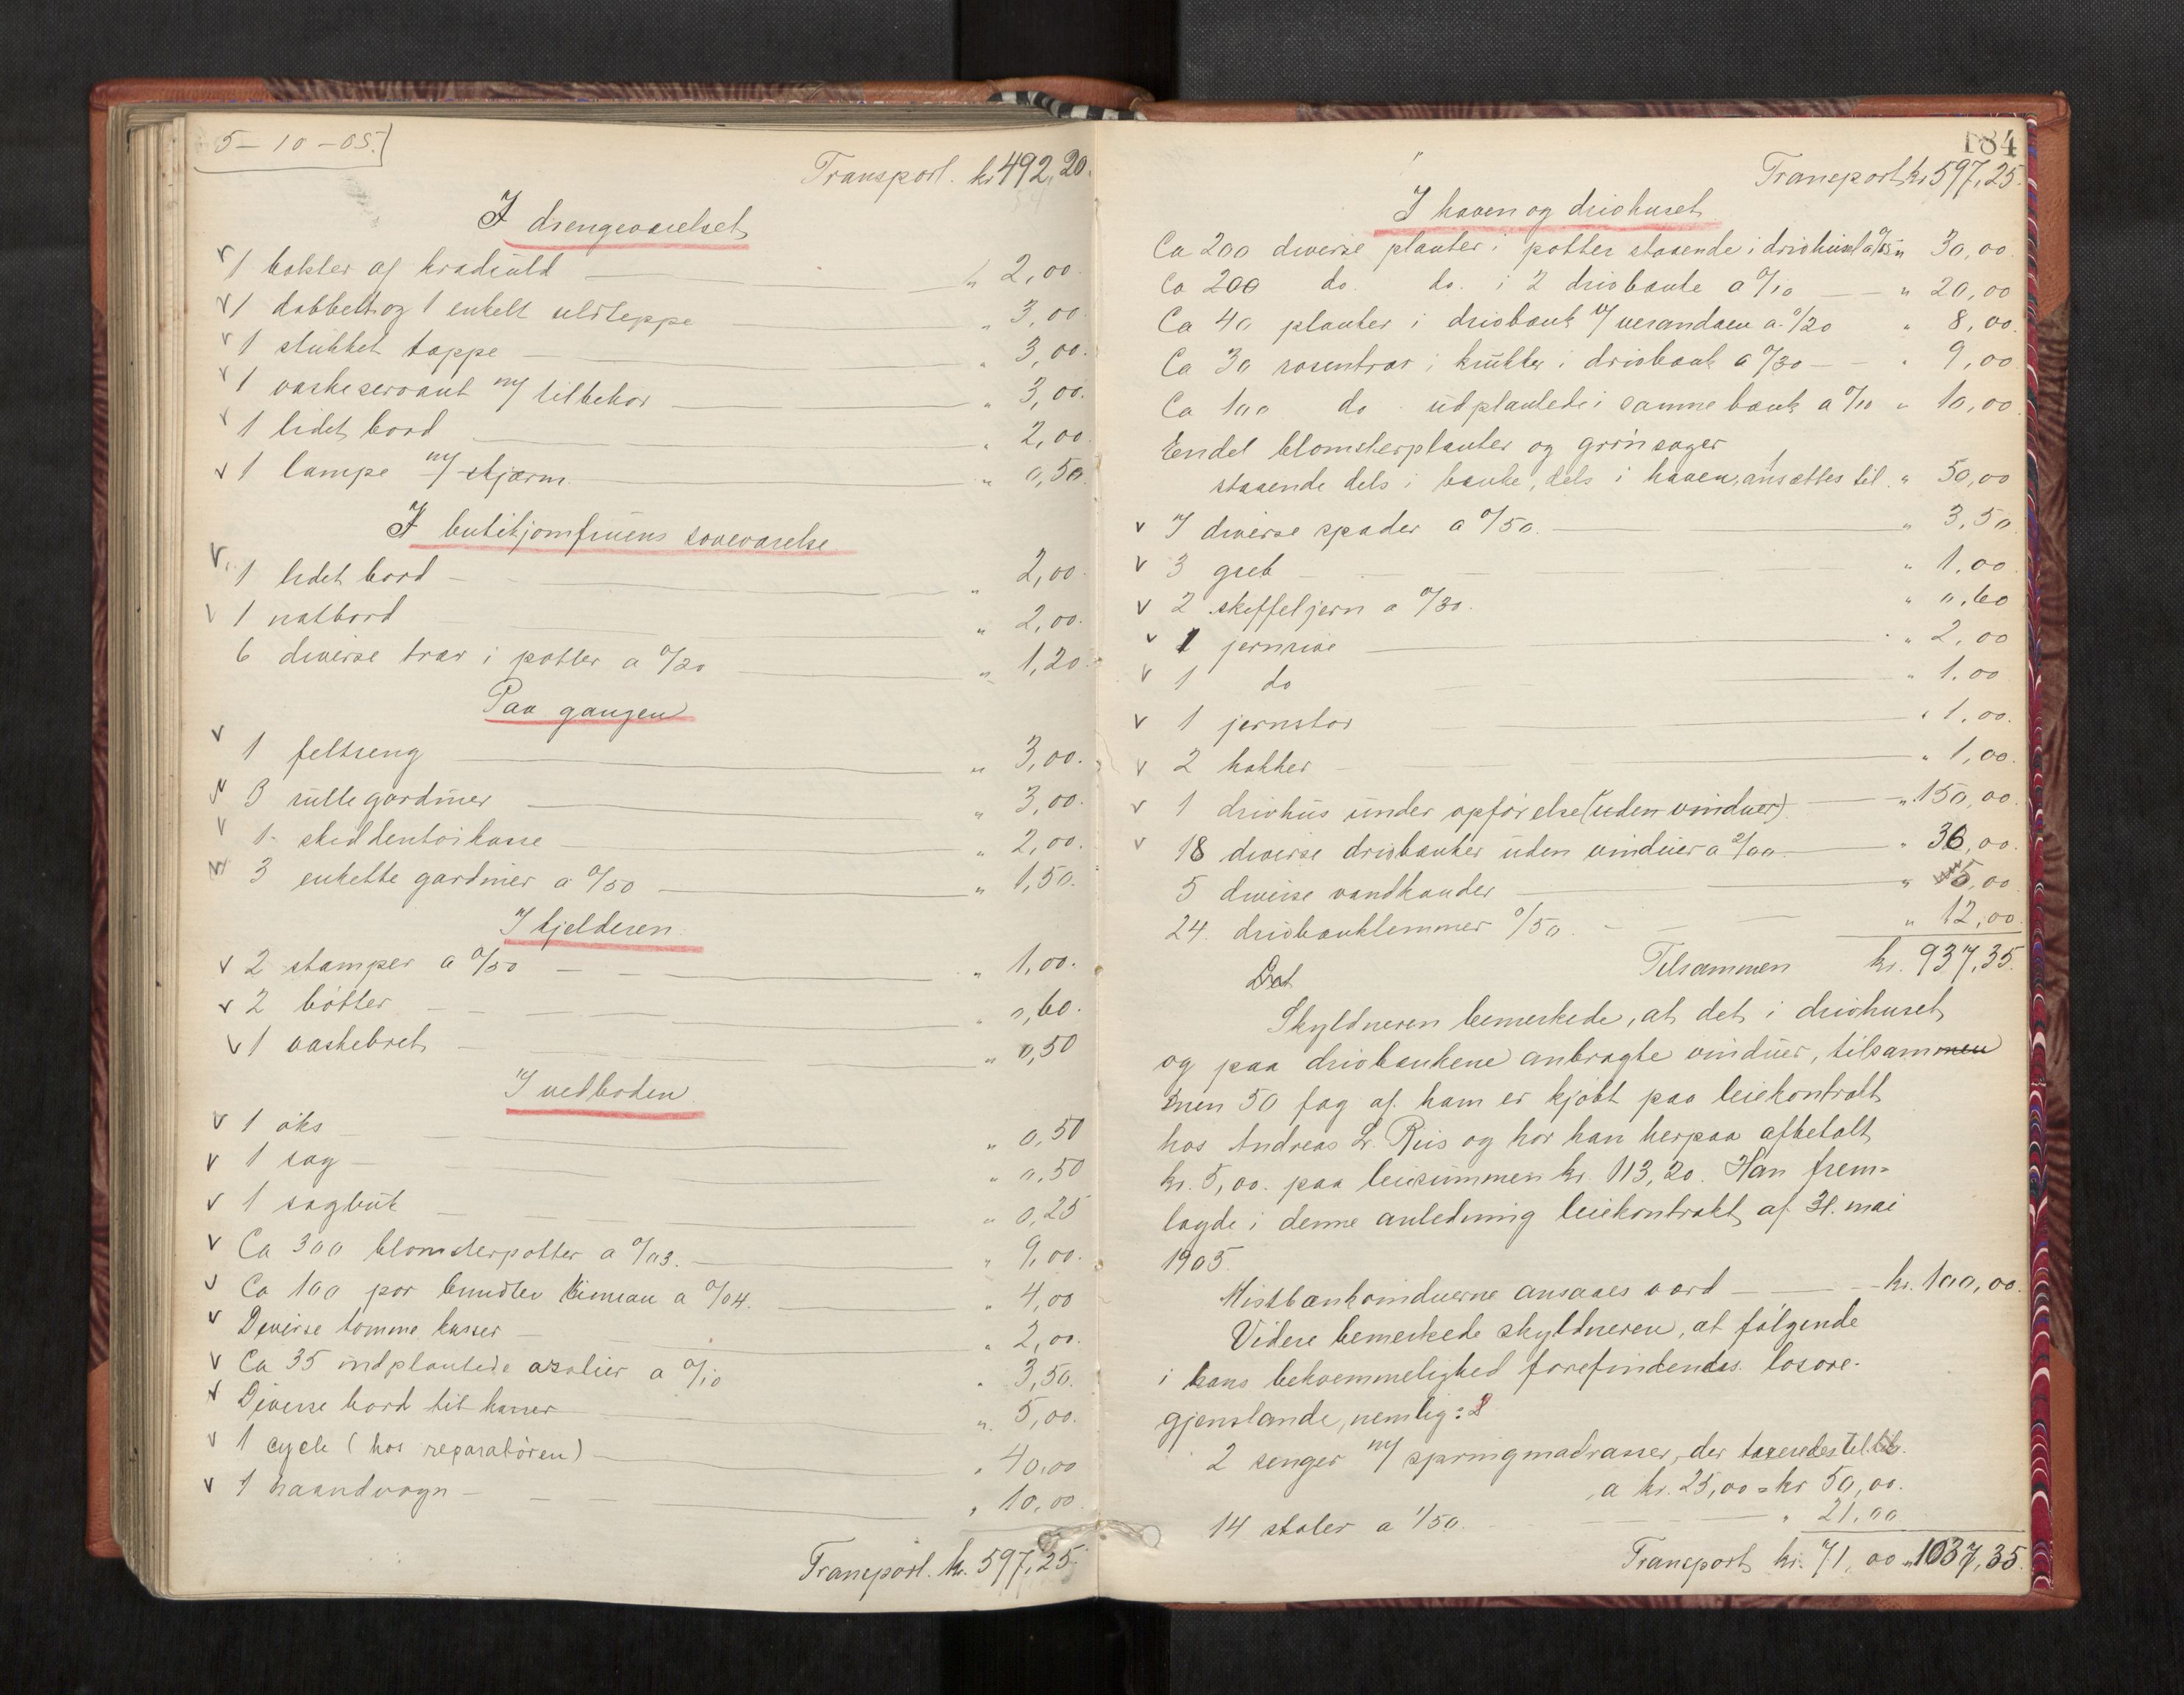 5-10-05.
Transport. kr 492,20.
I drengeværelset
1 bolster af krøluld " 2,00.
1 dobbelt og 1 enkelt uldteppe " 3,00.
1 slukket tæppe " 3,00.
1 vaskeservant m/ tilbehør " 3,00.
1 lidet bord " 2,00.
1 lampe m/ skjærm " 0,50.
I butikjomfruens soveværelse
1 lidet bord " 2,00.
1 natbord " 2,00.
6 diverse trær i potter a 0/20 " 1,20.
Paa gangen
1 feltseng " 3,00.
3 rullegardiner " 3,00.
1 skiddentøikasse " 2,00.
3 enkelte gardiner a 0/50 " 1,50.
I kjelderen
2 stamper a 0/50 " 1,00.
2 bøtter " 0,60.
1 vaskebret " 0,50
I vedboden
1 øks " 0,50
1 sag " 0,50
1 sagbuk " 0,25
Ca 300 blomsterpotter a 0/03. " 9,00.
Ca 100 par bundter a 0/04. " 4,00
Diverse tomme kasser " 2,00.
Ca 35 indplantede azalier a 0/10 " 3,50.
Diverse bord til kasser " 5,00.
1 cycle (hos reparatøren) " 40,00
1 haandvogn " 10,00.
Transport. kr. 597,25.
184
Transport kr. 597,25.
I haven og drivhuset
Ca 200 diverse planter i potter staaende i drivhuset a 0/15 " 30,00.
Ca 200 do. do. i 2 drivbænke a 0/10 " 20,00
Ca 40 planter i drivbænk v/ verandaen a 0/20 " 8,00.
Ca 30 rosentrær i krukker i drivbænk a 0/30 " 9,00
Ca 100 do udplantede i samme bænk a 0/10 " 10,00.
Endel blomsterplanter og grønsager
staaende dels i bænke, dels i haven, ansættes til " 50,00
7 diverse spader a 0/50. " 3,50.
3 greb " 1,00.
2 skyffeljern a 0/30. " 0,60
1 jernrive " 2,00
1 do " 1,00
1 jernstør " 1,00.
2 hakker " 1,00.
1 drivhus under opførelse (uden vinduer) " 150,00.
18 diverse drivbænker uden vinduer a 2/00. " 36,00.
5 diverse vandkander " 5,00.
24. drivbænklemmer 0/50. " 12,00.
Tilsammen kr. 937,35.
Det
Skyldneren bemerkede, at det i drivhuset
og paa drivbænkene anbragte vinduer, tilsammen
men 50 fag af ham er kjøbt paa leiekontrakt
hos Andreas L. Riis og har han herpaa afbetalt
kr. 5,00. paa leiesummen kr. 113,20. Han frem-
lagde i denne anledning leiekontrakt af 31. mai
1905.
Mistbænkvinduerne ansaaes værd kr. 100,00.
Videre bemerkede skyldneren, at følgende
i hans bekvemmelighed forefindendes løsøre-
gjenstande, nemlig:
2 senger m/ springmadrasser, der taxeredes til
a kr. 25,00 = kr 50,00.
14 stoler a 1/50. " 21,00
Transport kr. 71,00 " 1037,35.